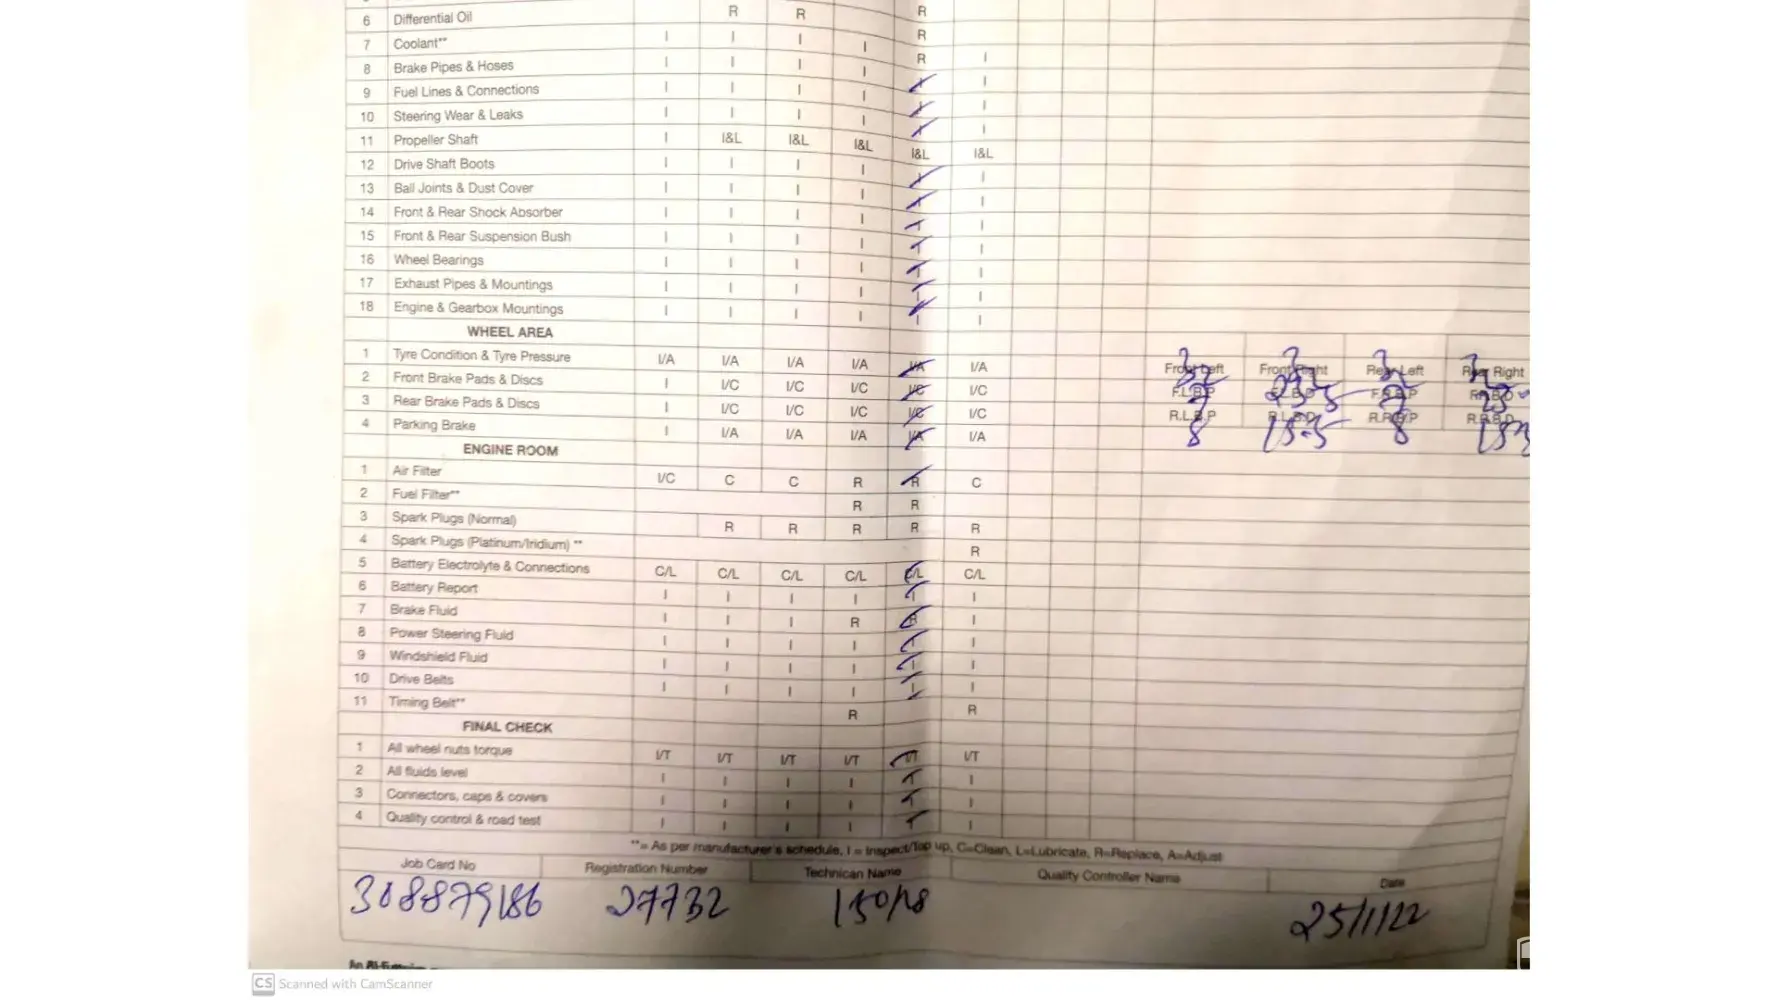 6 Differential Oil R R R
7 Coolant** I I I I R
8 Brake Pipes & Hoses I I I I R I
9 Fuel Lines & Connections I I I I I
10 Steering Wear & Leaks I I I I I
11 Propeller Shaft I I&L I&L I&L I&L I&L
12 Drive Shaft Boots I I I I I
13 Ball Joints & Dust Cover I I I I I
14 Front & Rear Shock Absorber I I I I I I
15 Front & Rear Suspension Bush I I I I I I
16 Wheel Bearings I I I I I I
17 Exhaust Pipes & Mountings I I I I I I
18 Engine & Gearbox Mountings I I I I I I
WHEEL AREA
1 Tyre Condition & Tyre Pressure I/A I/A I/A I/A I/A I/A Front Left Front Right Rear Left Rear Right
2 Front Brake Pads & Discs I I/C I/C I/C I/C I/C F.L.B.P
3 Rear Brake Pads & Discs I I/C I/C I/C I/C I/C R.L.B.P R.L.B.D R.R.B.P R.R.B.D
4 Parking Brake I I/A I/A I/A I/A I/A 8 15.5 8
ENGINE ROOM
1 Air Filter I/C C C R R C
2 Fuel Filter** R R
3 Spark Plugs (Normal) R R R R R
4 Spark Plugs (Platinum/Iridium) ** R
5 Battery Electrolyte & Connections C/L C/L C/L C/L C/L C/L
6 Battery Report I I I I I I
7 Brake Fluid I I I R R I
8 Power Steering Fluid I I I I I I
9 Windshield Fluid I I I I I I
10 Drive Belts I I I I I I
11 Timing Belt** R R
FINAL CHECK
1 All wheel nuts torque I/T I/T I/T I/T I/T I/T
2 All fluids level I I I I I I
3 Connectors, caps & covers I I I I I I
4 Quality control & road test I I I I I I
**= As per manufacturer's schedule, I = Inspect/Top up, C=Clean, L=Lubricate, R=Replace, A=Adjust
Job Card No Registration Number Technican Name Quality Controller Name Date
308879186 27732 25/1/22
CS Scanned with CamScanner